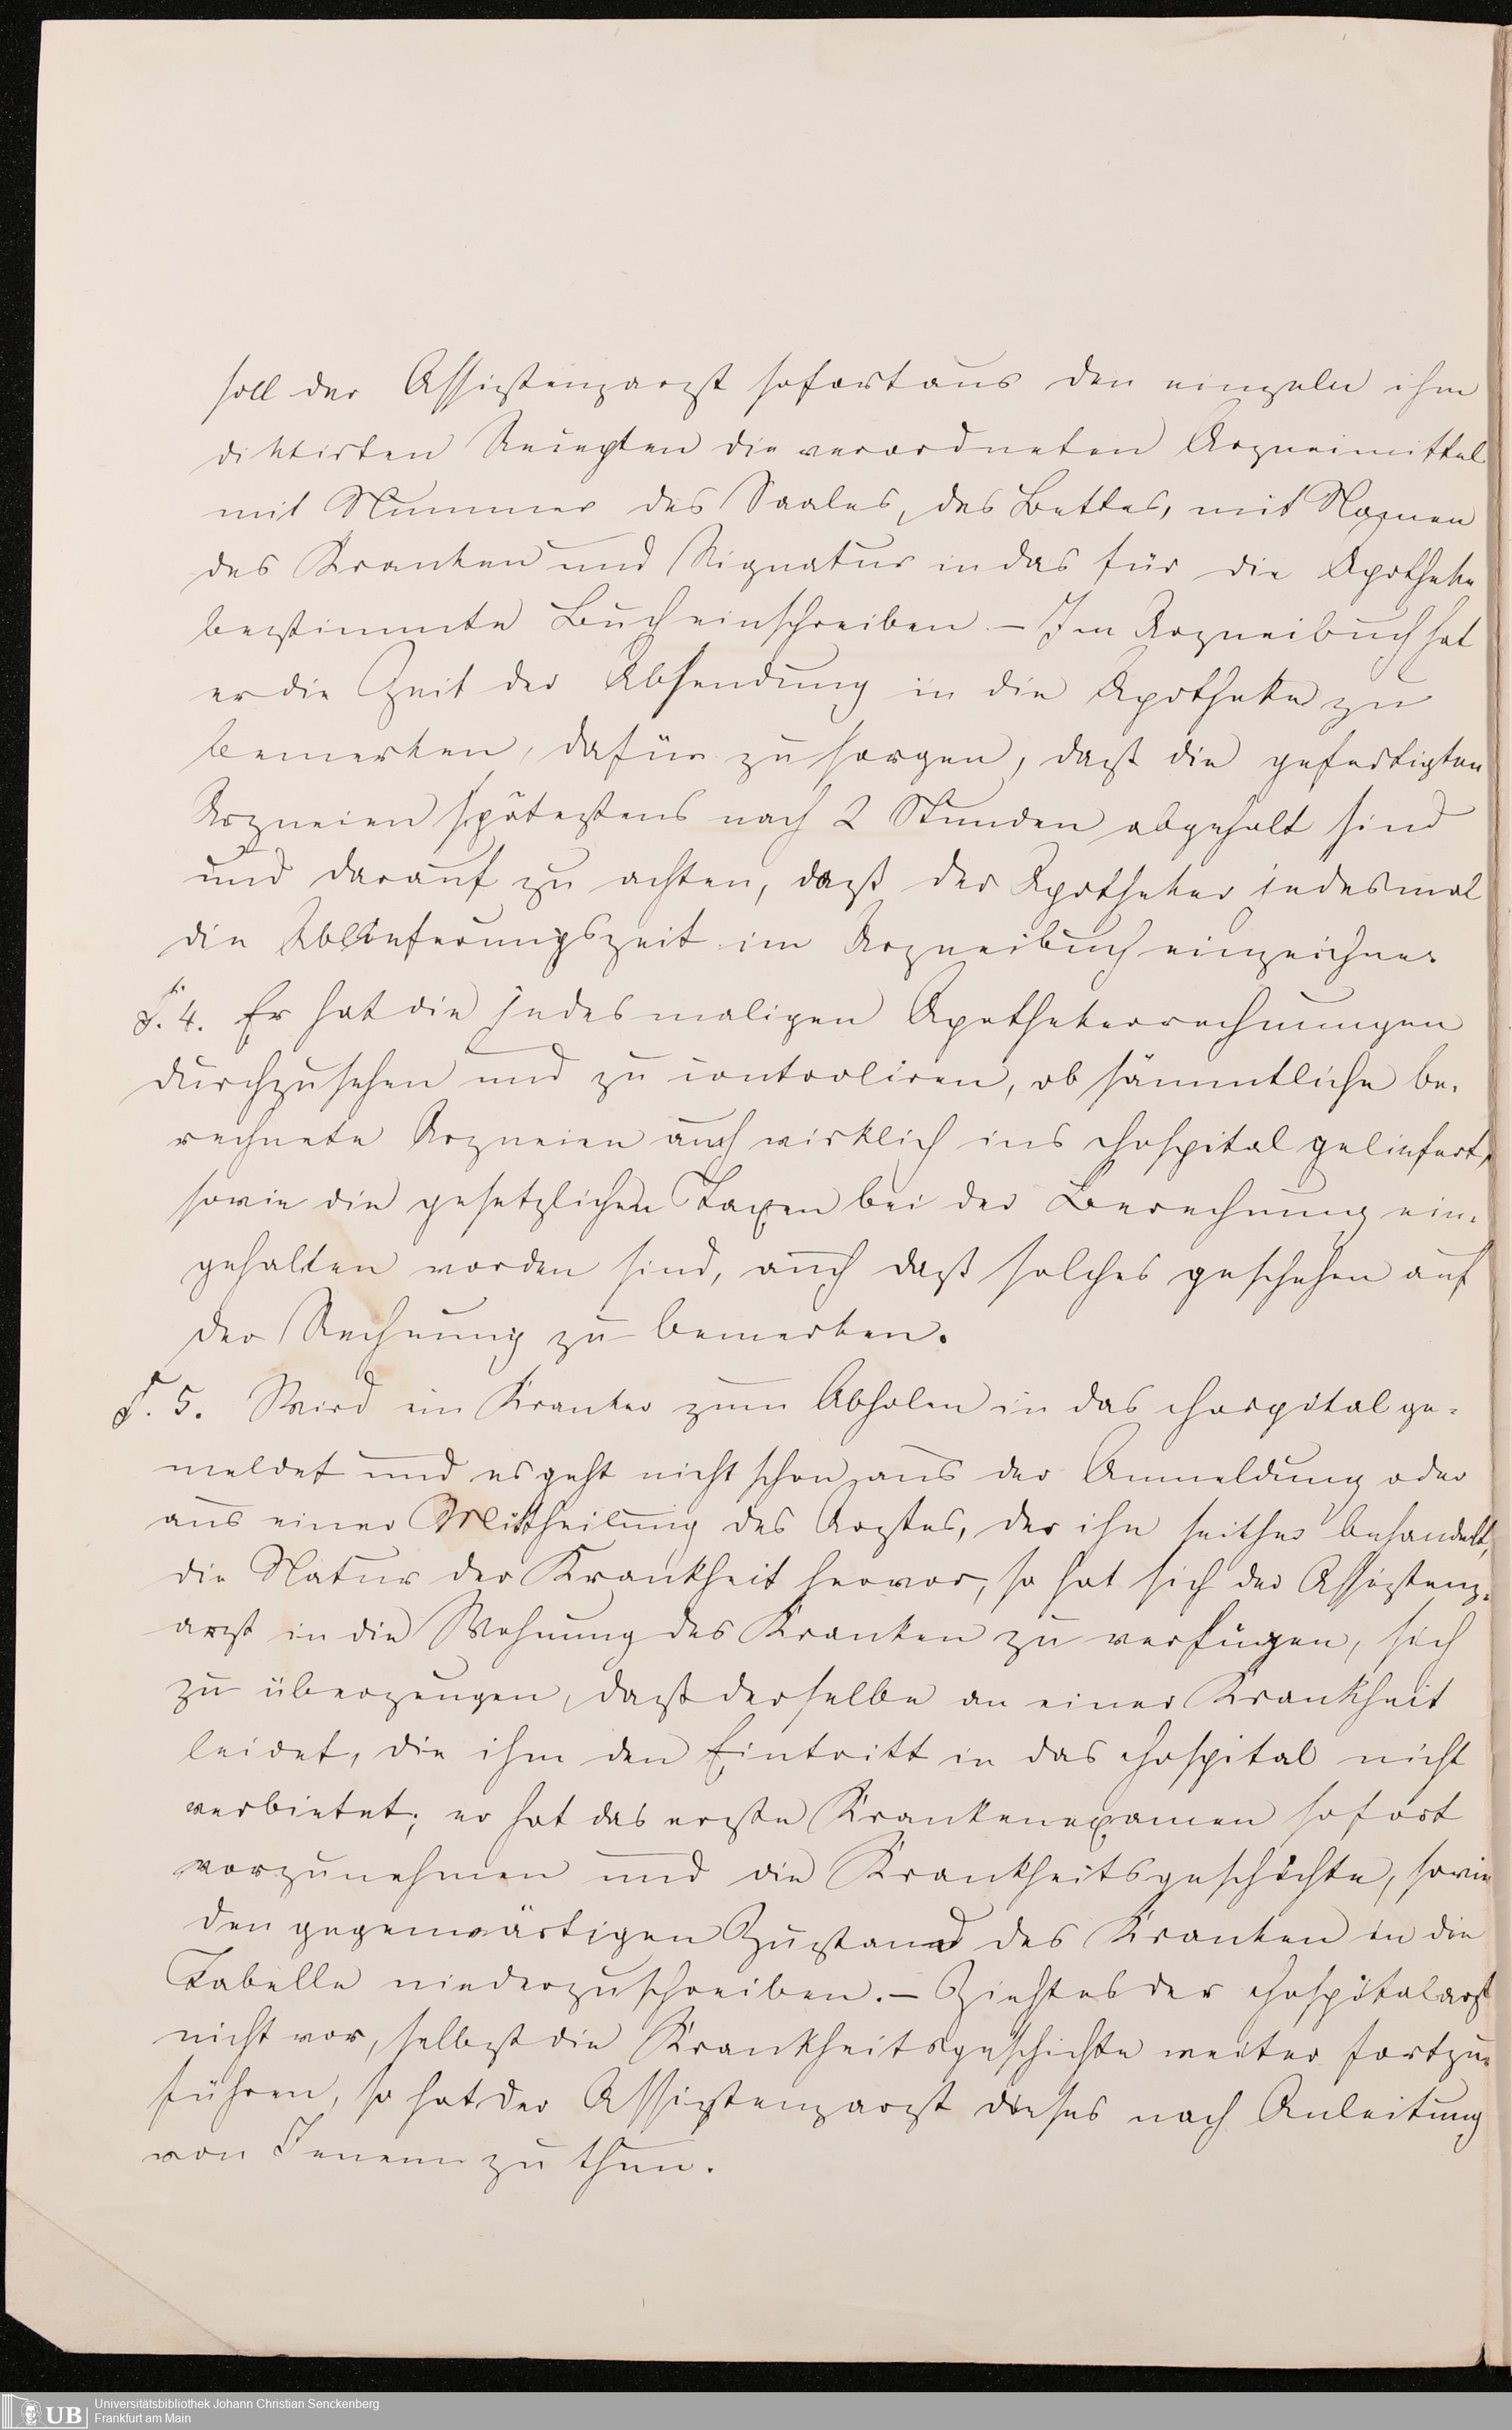 soll der Assistenzarzt sofort aus den einzeln ihm
diktirten Recepten die verordneten Arzneimittel
mit Nummer des Saales, des Bettes, mit Namen
des Kranken und Signatur in das für die Apotheke
bestimmte Buch einschreiben. – Im Arzneibuch hat
er die Zeit der Absendung in die Apotheke zu
bemerken, dafür zu sorgen, daß die gefertigten
Arzneien spätestens nach 2 Stunden abgeholt sind
und darauf zu achten, daß der Apotheker jedesmal
die Ablieferungszeit im Arzneibuch einzeichne.
§. 4. Er hat die jedesmaligen Apothekerrechnungen
durchzusehen und zu controliren, ob sämmtliche be-
rechnete Arzneien auch wirklich ins Hospital geliefert,
sowie die gesetzlichen Taxen bei der Berechnung ein-
gehalten worden sind, auch daß solches geschehen auf
der Rechnung zu bemerken.
§. 5. Wird ein Kranker zum Abholen in das Hospital ge-
meldet und es geht nicht schon aus der Anmeldung oder
aus einer Mittheilung des Arztes, der ihn seither behandelt,
die Natur der Krankheit hervor, so hat sich der Assistenz-
arzt in die Wohnung des Kranken zu verfügen, sich
zu überzeugen, daß derselbe an einer Krankheit
leidet, die ihm den Eintritt in das Hospital nicht
verbietet; er hat das erste Krankenexamen sofort
vorzunehmen und die Krankheitsgeschichte, sowie
den gegenwärtigen Zustand des Kranken in die
Tabelle niederzuschreiben. – Zieht es der Hospitalarzt
nicht vor, selbst die Krankheitsgeschichte weiter fortzu-
führen, so hat der Assistenzarzt dieses nach Anleitung
von Jenem zu thun.
UB
Universitätsbibliothek Johann Christian Senckenberg
Frankfurt am Main